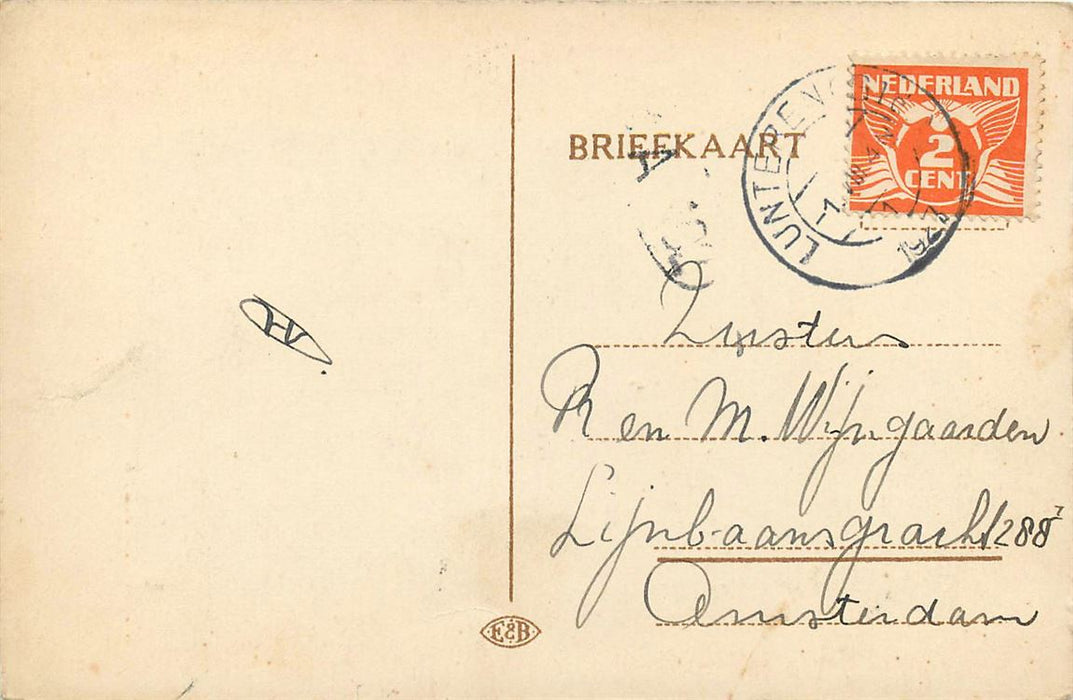 BRIEFKAART
NEDERLAND
2
CENT
LUNTEREN
Zusters
R en M. Wijngaarden
Lijnbaansgracht 288⁷
Amsterdam
E&B